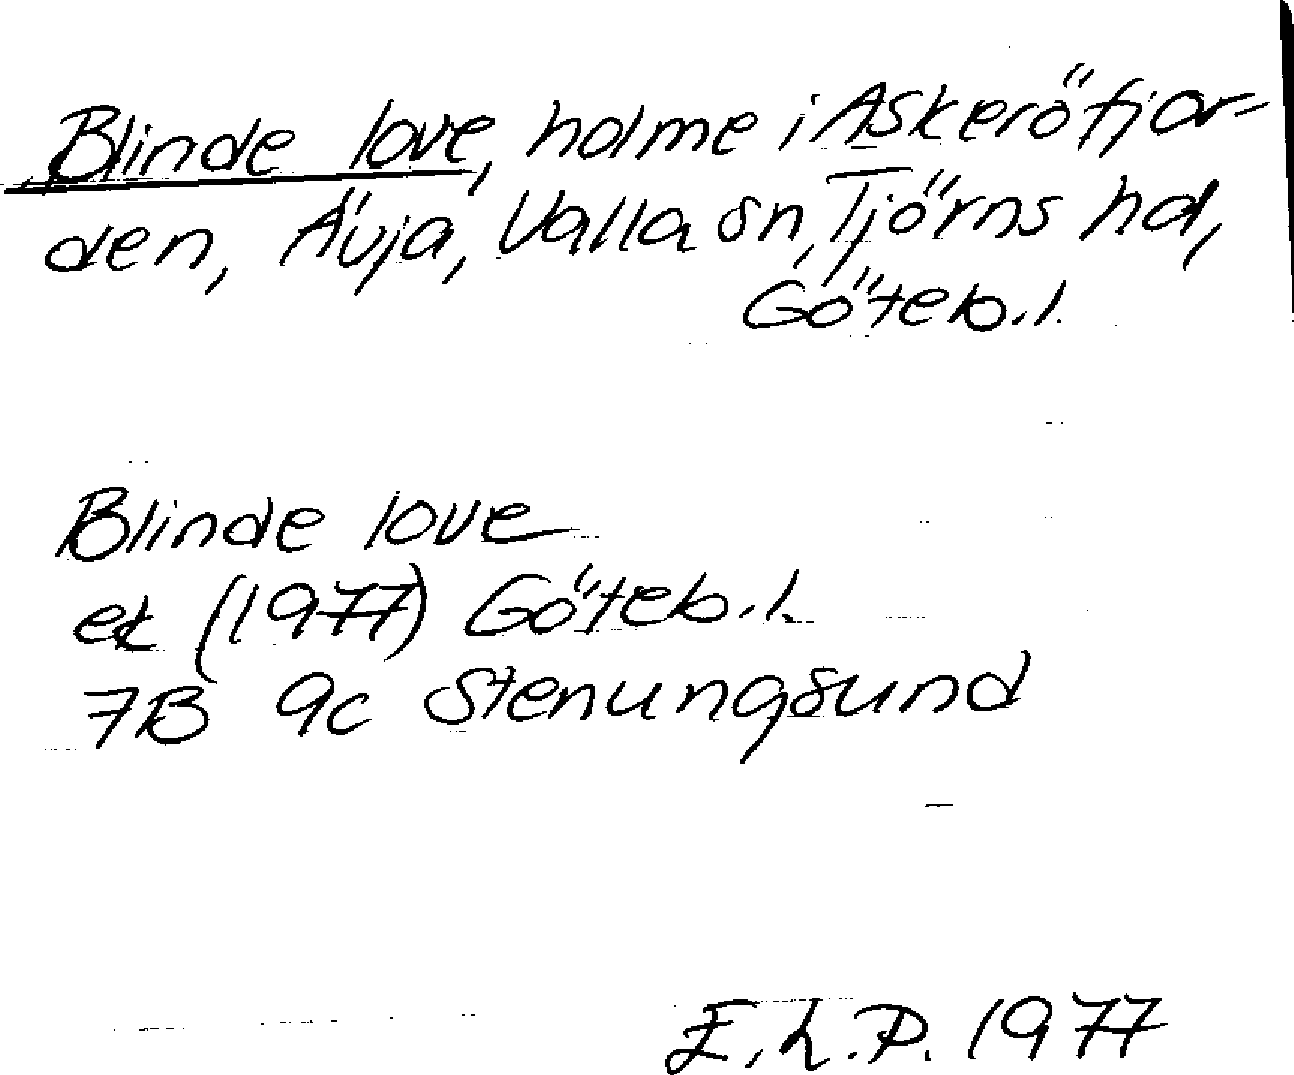 Blinde love, holme i Askeröfjor-
den, Ävja, Valla sn, Tjörns hd,
Göteb.l.
Blinde love
ek (1977) Göteb.l.
7B 9c Stenungsund
E.L.P. 1977